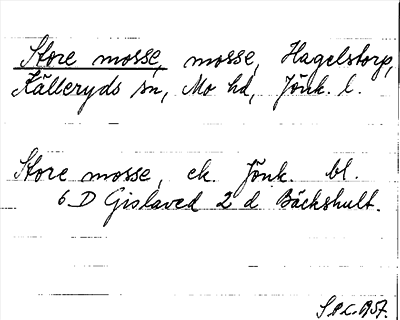 Store mosse, mosse, Hagelstorp,
Källeryds sn, Mo hd, Jönk. l.
Store mosse, ek. Jönk. bl.
6 D Gislaved 2 d Bäckshult.
1957.